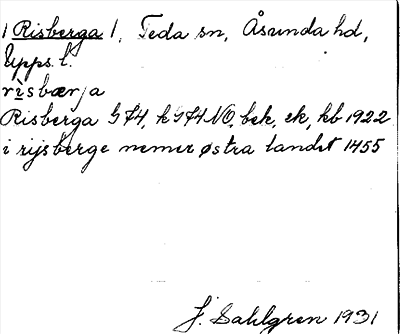 / Risberga /, Teda sn, Åsunda hd,
Upps. l.
rìsbærja
Risberga GFA, k GFA NO, bek, ek, kb 1922
i rijsberge nemer østra landet 1455
J. Sahlgren 1931